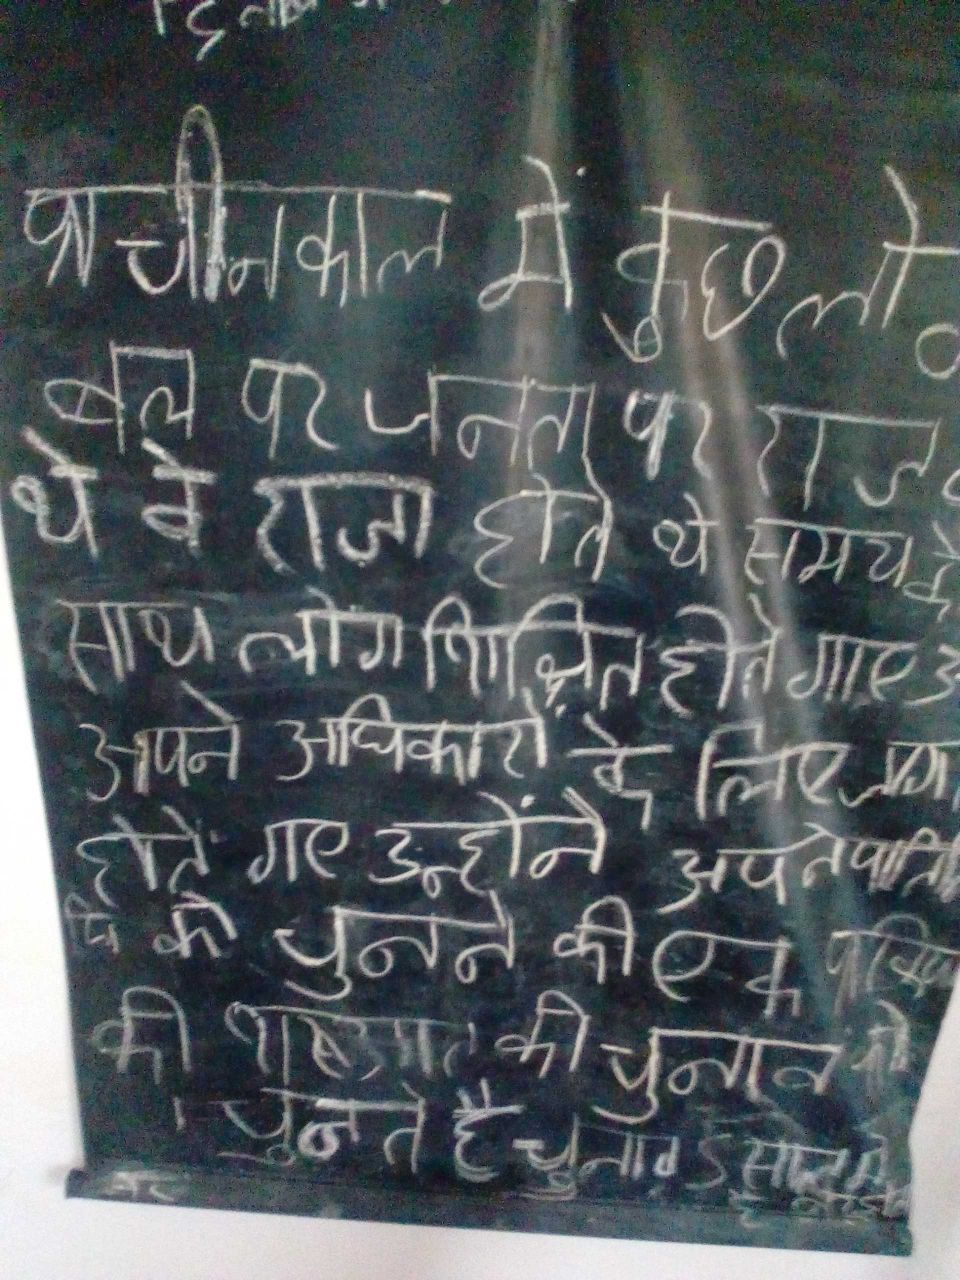 प्राचीनकाल में कुछ लो
बल पर जनता पर राज
थे वे राजा होते थे समय के
साथ लोग शिक्षित होते गाए
अपने अधिकारों के लिए
होते गए उन्होंने अपने
को चुनने की एक
की की चुनाव
चुनते है चुनाव 5 साल में